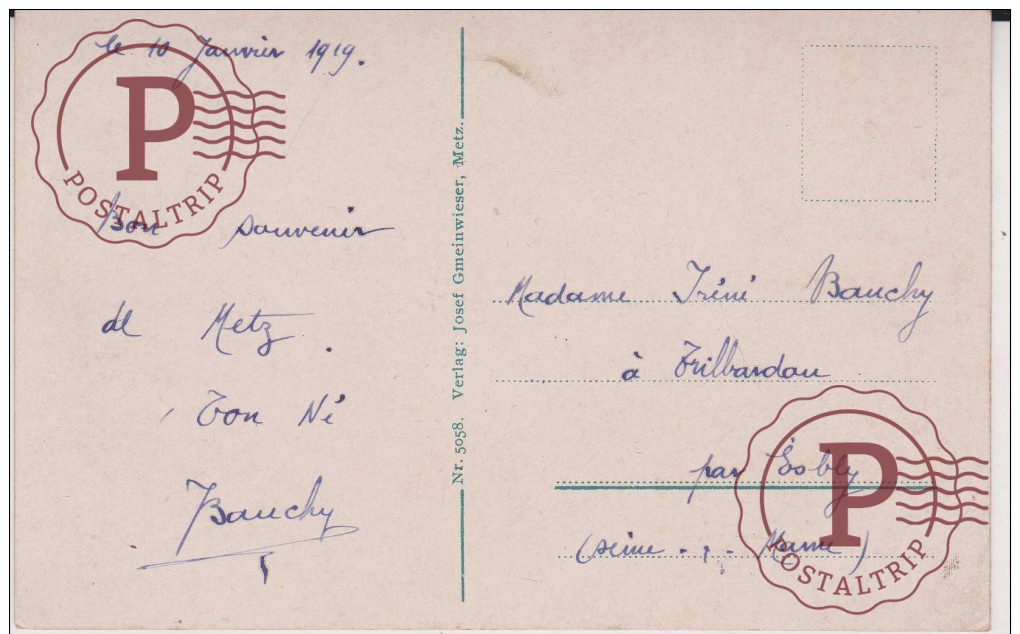 le 10 Janvier 1919.
Bon souvenir
de Metz.
Ton Né
Bauchy
Nr. 5058. Verlag: Josef Gmeinwieser, Metz.
Madame Iréné Bauchy
à Trilbardou
par Esbly
(Seine - , - Marne)
P
POSTALTRIP
P
POSTALTRIP